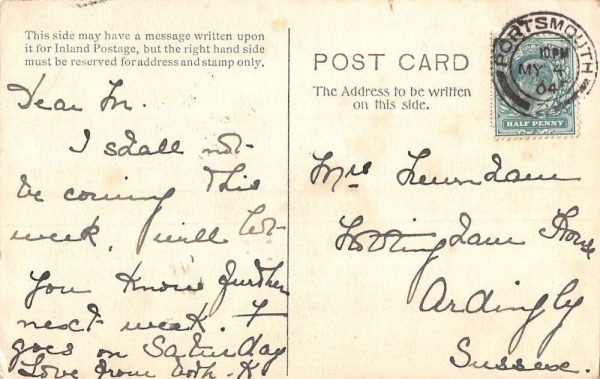 This side may have a message written upon
it for Inland Postage, but the right hand side
must be reserved for address and stamp only.
Dear M.
I shall not
be coming this
week, will let
you know further
next week. F
goes on Saturday
Love from both. K
POST CARD
The Address to be written
on this side.
PORTSMOUTH
10.PM
MY 4
04
HALF PENNY
Mrs
House
Ardingly
Sussex.